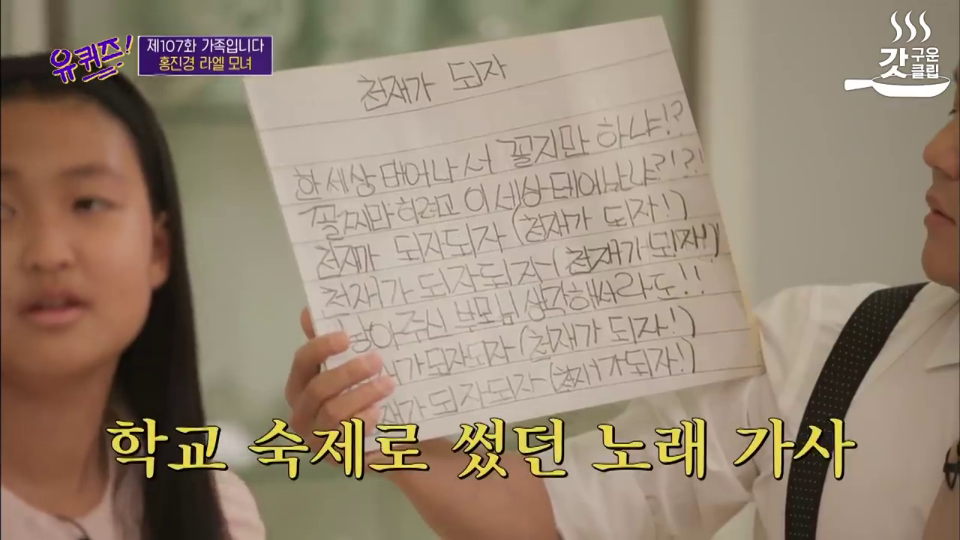 유퀴즈!
제107화 가족입니다
홍진경 라엘 모녀
갓구운클립
천재가 되자
한세상 태어나서 꼴지만 하냐!?
꼴찌만하려고 이세상 테어났냐?!?!
천재가 되자되자 (천재가 되자!)
천재가 되자되자 (천재가 되자!)
낳아주신 부모님 생각해서라도!!
가되자되자 (천재가 되자!)
재가 되자되자 (천재가되자!)
학교 숙제로 썼던 노래 가사